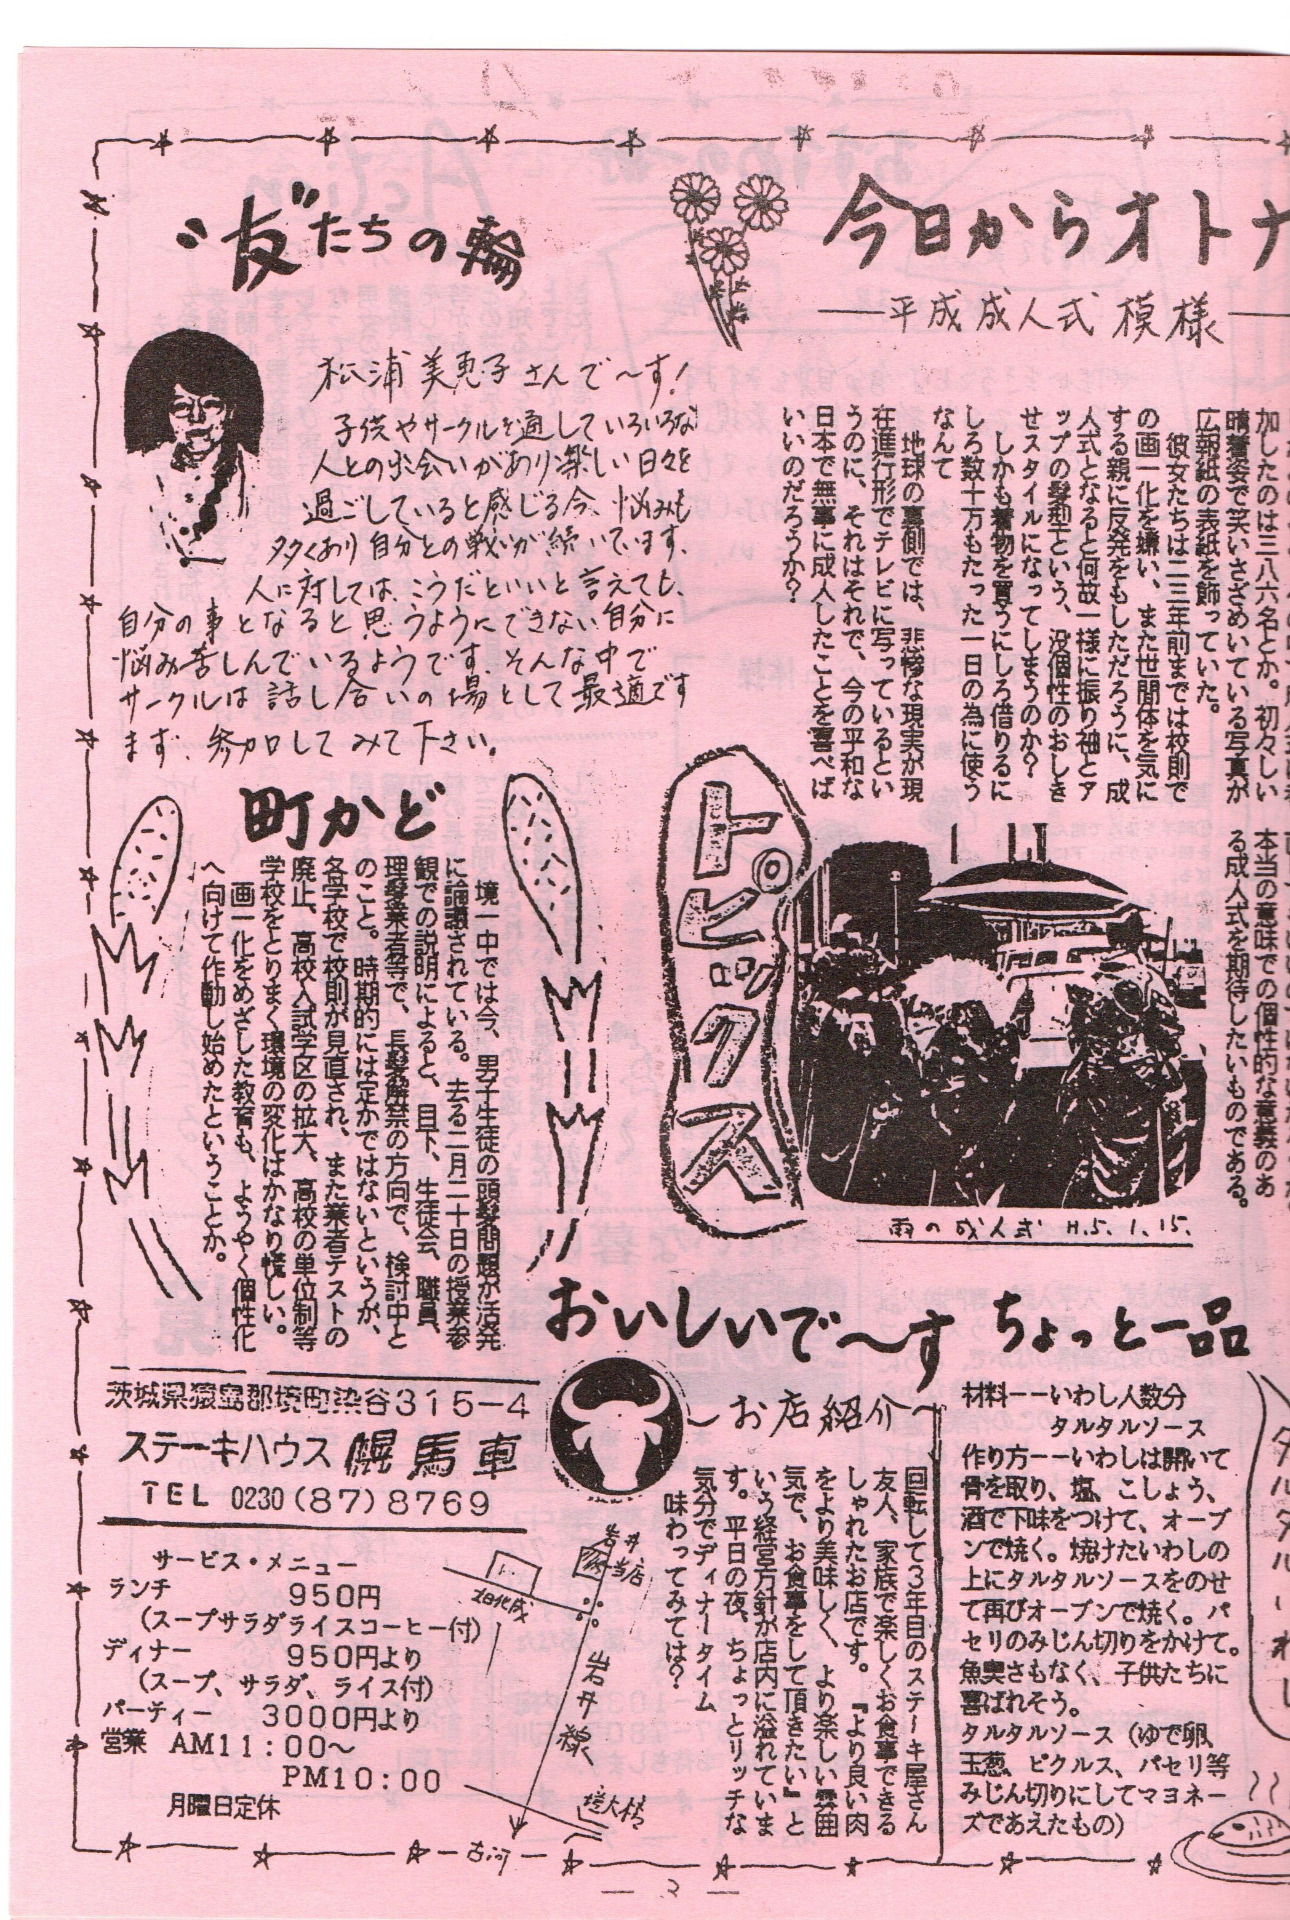 “友”たちの輪
松浦美恵子さんで〜す!
子供やサークルを通していろいろな
人との出会いがあり楽しい日々を
過ごしていると感じる今、悩みも
多くあり自分との戦いが続いています。
人に対しては、こうだといいと言えても、
自分の事となると思うようにできない自分に
悩み苦しんでいるようです。そんな中で
サークルは話し合いの場として最適です
ます。参加してみて下さい。
今日からオトナ
―平成成人式模様―
加したのは三八六名とか。初々しい
晴着姿で笑いさざめいている写真が
広報紙の表紙を飾っていた。
彼女たちは二三年前までは校則で
の画一化を嫌い、また世間体を気に
する親に反発をもしただろうに、成
人式となると何故一様に振り袖とア
ップの髪型という、没個性のおしき
せスタイルになってしまうのか?
しかも着物を買うにしろ借りるに
しろ数十万もたった一日の為に使う
なんて
地球の裏側では、悲惨な現実が現
在進行形でテレビに写っているとい
うのに、それはそれで、今の平和な
日本で無事に成人したことを喜べば
いいのだろうか?
本当の意味での個性的な意義のあ
る成人式を期待したいものである。
トピックス
雨の成人式 H.5.1.15.
町かど
境一中では今、男子生徒の頭髪問題が活発
に論議されている。去る二月二十日の授業参
観での説明によると、目下、生徒会、職員、
理髪業者等で、長髪解禁の方向で、検討中と
のこと。時期的には定かではないというが、
各学校で校則が見直され、また業者テストの
廃止、高校入試学区の拡大、高校の単位制等
学校をとりまく環境の変化はかなり慌しい。
画一化をめざした教育も、ようやく個性化
へ向けて作動し始めたということか。
おいしいで〜す
〜お店紹介〜
回転して3年目のステーキ屋さん
友人、家族で楽しくお食事できる
しゃれたお店です。『より良い肉
をより美味しく、より楽しい雰囲
気で、お食事をして頂きたい』と
いう経営方針が店内に溢れていま
す。平日の夜、ちょっとリッチな
気分でディナータイム
味わってみては?
茨城県猿島郡境町染谷315−4
ステーキハウス 幌馬車
TEL 0230(87)8769
サービス・メニュー
ランチ 950円
(スープサラダライスコーヒー付)
ディナー 950円より
(スープ、サラダ、ライス付)
パーティー 3000円より
営業 AM11:00〜
PM10:00
月曜日定休
岩井
当店
岩井線
境大橋
古河
ちょっと一品
材料−−いわし人数分
タルタルソース
作り方−−いわしは開いて
骨を取り、塩、こしょう、
酒で下味をつけて、オーブ
ンで焼く。焼けたいわしの
上にタルタルソースをのせ
て再びオーブンで焼く。パ
セリのみじん切りをかけて。
魚臭さもなく、子供たちに
喜ばれそう。
タルタルソース(ゆで卵、
玉葱、ピクルス、パセリ等
みじん切りにしてマヨネー
ズであえたもの)
タルタルいわし
— 3 —